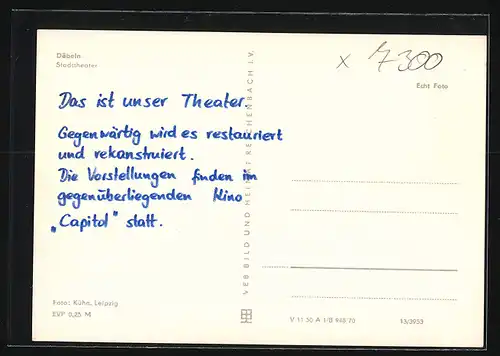 Döbeln
Stadttheater
x 7300
Echt Foto
Das ist unser Theater.
Gegenwärtig wird es restauriert
und rekonstruiert.
Die Vorstellungen finden im
gegenüberliegenden Kino
„Capitol" statt.
VEB BILD UND HEIMAT REICHENBACH I. V.
Foto: Kühn, Leipzig
EVP 0,25 M
V 11 50 A 1/B 948/70
13/3953